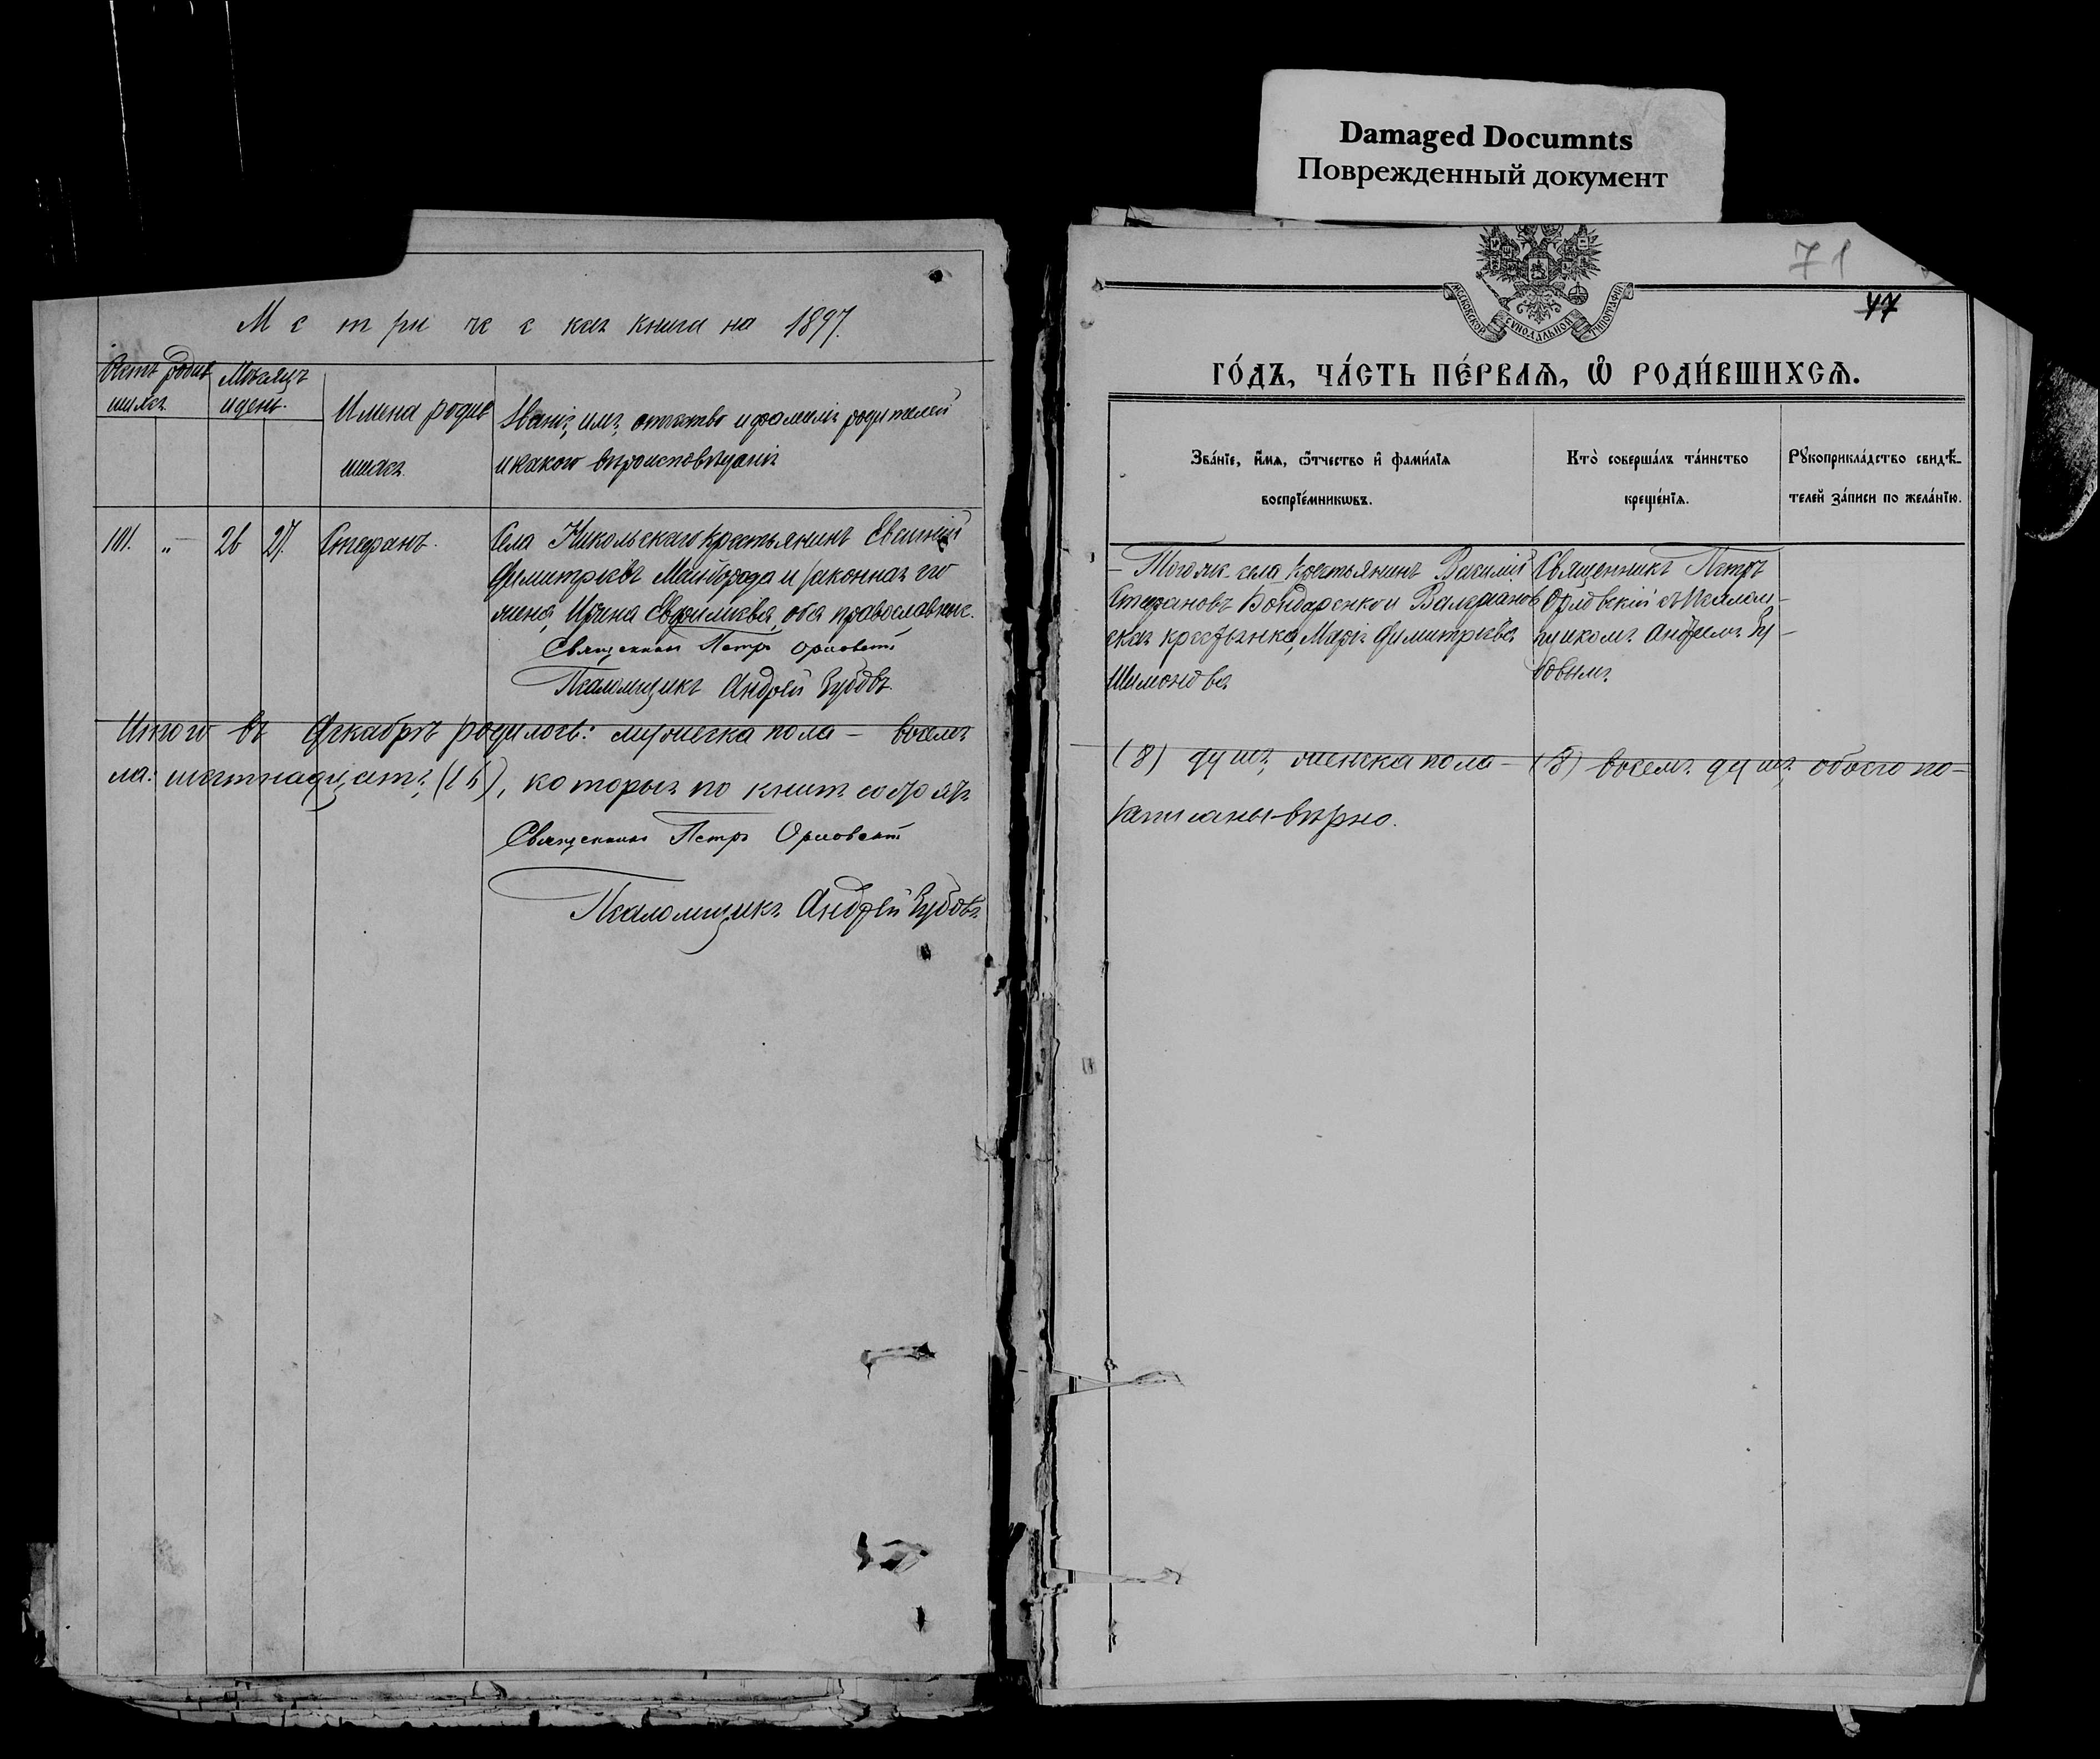 Damaged Documnts
Поврежденный документ
Метрическая книга на 1897.
Счетъ родив
шихся.
Мѣсяцъ
и день.
Имена родив
шихся.
Званіе, имя, отчество и фамилія родителей
и какого вѣроисповѣданія
101. „ — 26 27. Стефанъ.
Села Никольскаго крестьянинъ Евгеній
Димитріевъ Майборода и законная его
жена, Ирина Евфиміева, оба православные.
Священникъ Петръ Орловскій
Псаломщикъ Андрей Зубовъ.
Итого въ Декабрѣ родилось: мужеска пола — восемь
ла: шестнадцать (16), которыя по книгѣ
Священникъ Петръ Орловскій
Псаломщикъ Андрей Зубовъ
71
47
МОСКОВСКОЙ СѴНОДАЛЬНОЙ ТИПОГРАФІИ
ГО́ДЪ, ЧА́СТЬ ПЕ́РВАѦ, Ѡ҆ РОДИ́ВШИХСѦ.
Зва́нїе, и҆́мѧ, ѻ҆́тчество и҆ фами́лїѧ
воспрїе́мникѡвъ.
Кто̀ соверша́лъ та́инство
креще́нїѧ.
Рꙋкоприкла́дство свидѣ́-
телей за́писи по жела́нїю.
— Того же села крестьянинъ Василій
Стефановъ Бондаренко и Валеріанов
ская крестьянка, Марія Димитріева
Шимонова
Священникъ Петръ
Орловскій съ Псалом-
щикомъ Андреемъ Зу-
бовымъ
(8) душъ, женска пола — (8) восемь душъ, обоего по-
записаны вѣрно.